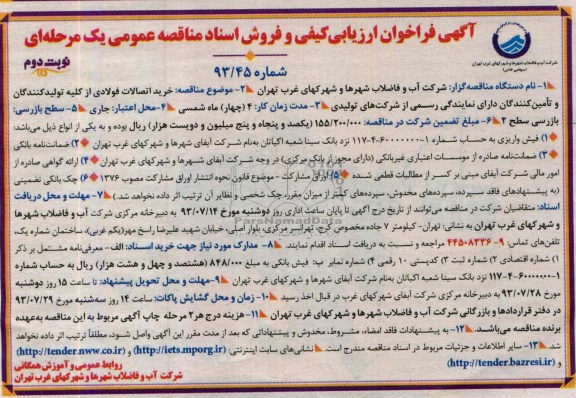 آگهی فراخوان ارزیابی‌کیفی و فروش اسناد مناقصه عمومی یک مرحله‌ای
شماره ۹۳/۴۵
نوبت دوم
شرکت آب و فاضلاب شهرها و شهرکهای غرب تهران
(سهامی خاص)
۱- نام دستگاه مناقصه‌گزار: شرکت آب و فاضلاب شهرها و شهرکهای غرب تهران ۲- موضوع مناقصه: خرید اتصالات فولادی از کلیه تولیدکنندگان
و تأمین‌کنندگان دارای نمایندگی رسمی از شرکت‌های تولیدی ۳- مدت زمان کار: ۴ (چهار) ماه شمسی ۴- محل اعتبار: جاری ۵- سطح بازرسی:
بازرسی سطح ۲ ۶- مبلغ تضمین شرکت در مناقصه: ۱۵۵/۲۰۰/۰۰۰ (یکصد و پنجاه و پنج میلیون و دویست هزار) ریال بوده و به یکی از انواع ذیل می‌باشد:
۱) فیش واریزی به حساب شماره ۱-۶۰۰۰۰۰۰-۴-۱۱۷ نزد بانک سینا شعبه اکباتان به‌نام شرکت آبفای شهرها و شهرکهای غرب تهران ۲) ضمانت‌نامه بانکی
۳) ضمانت‌نامه صادره از موسسات اعتباری غیربانکی (دارای مجوز از بانک مرکزی) در وجه شرکت آبفای شهرها و شهرکهای غرب تهران ۴) ارائه گواهی صادره از
امور مالی شرکت آبفای مبنی بر کسر از مطالبات قطعی شده ۵) اوراق مشارکت - موضوع قانون نحوه انتشار اوراق مشارکت مصوب ۱۳۷۶ ۶) چک بانکی تضمینی
(به پیشنهادهای فاقد سپرده، سپرده‌های مخدوش، سپرده‌های کمتر از میزان مقرر، چک شخصی و نظایر آن ترتیب اثر داده نخواهد شد.) ۷- مهلت و محل دریافت
اسناد: متقاضیان شرکت در مناقصه می‌توانند از تاریخ درج آگهی تا پایان ساعت اداری روز دوشنبه مورخ ۹۳/۰۷/۱۴ به دبیرخانه مرکزی شرکت آب و فاضلاب شهرها
و شهرکهای غرب تهران به نشانی: تهران- کیلومتر ۷ جاده مخصوص کرج، تهرانسر مرکزی، بلوار اصلی، خیابان شهید علیرضا راسخ مهر(یکم غربی)، ساختمان شماره یک،
و تلفن‌های تماس: ۹-۴۴۵۰۸۳۳۶ مراجعه و نسبت به دریافت اسناد اقدام نمایند. ۸- مدارک مورد نیاز جهت خرید اسناد: الف - معرفی‌نامه مشتمل بر ذکر
۱) شماره اقتصادی ۲) شماره ثبت ۳) کدپستی ۱۰ رقمی ۴) شماره نمابر ب: فیش بانکی به مبلغ ۸۴۸/۰۰۰ (هشتصد و چهل و هشت هزار) ریال به حساب شماره
۱-۶۰۰۰۰۰۰-۴-۱۱۷ نزد بانک سینا شعبه اکباتان به‌نام شرکت آبفای شهرها و شهرکهای غرب تهران ۹- مهلت و محل تحویل پیشنهاد: تا ساعت ۱۵ روز دوشنبه
مورخ ۹۳/۰۷/۲۸ به دبیرخانه مرکزی شرکت آبفای شهرها و شهرکهای غرب تهران در قبال اخذ رسید ۱۰- زمان و محل گشایش پاکات: ساعت ۱۴ روز سه‌شنبه مورخ ۹۳/۰۷/۲۹
در دفتر قراردادها و بازرگانی شرکت آب و فاضلاب شهرها و شهرکهای غرب تهران ۱۱- هزینه درج هر۲ مرحله چاپ آگهی مربوط به این مناقصه به‌عهده
برنده مناقصه می‌باشد. ۱۲- به پیشنهادات فاقد امضاء، مشروط، مخدوش و پیشنهاداتی که بعد از مدت مقرر این آگهی واصل شود، مطلقاً ترتیب اثر داده نخواهد
شد. ۱۳- سایر اطلاعات و جزئیات مربوط در اسناد مناقصه مندرج است. نشانی‌های سایت اینترنتی: (http://iets.mporg.ir) و (http://tender.nww.co.ir)
و (http://tender.bazresi.ir)
روابط عمومی و آموزش همگانی
شرکت آب و فاضلاب شهرها و شهرکهای غرب تهران